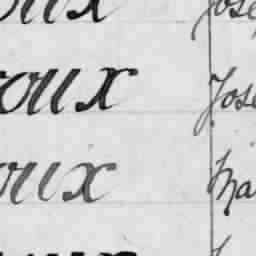 oux Jose
oux Jose
oux Ma